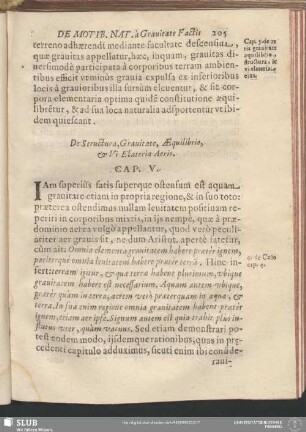 DE MOTIB. NAT. à Grauitate Factis 205
terreno adhærendi mediante facultate descensiua,
quæ grauitas appellatur, hæc, inquam, grauitas di-
uersimodè participata à corporibus terram ambien-
tibus efficit vt minùs grauia expulsa ex inferioribus
locis à grauioribus illa sursùm eleuentur, & sic cor-
pora elementaria optima quidè constitutione æqui-
librẽtur, & ad sua loca naturalia adsportentur vt ibi-
dem quiescant.
Cap. 5. de
grauitate
æquilibrio,
structura, &
vi elateria
De Structura, Grauitate, Æquilibrio,
& Vi Elateria Aeris.
CAP. V.
IAm superiùs satis superque ostensum est aquam
grauitate etiam in propria regione, & in suo toto:
præterea ostendimus nullam leuitatem positiuam re-
periri in corporibus mixtis, in ijs nempè, quæ à præ-
dominio aerea vulgò appellantur, quod verò peculi-
ariter aer grauis sit, nedum Aristot. apertè fatetur,
cùm ait: Omnia elementa grauitatem habere præter ignem,
pariterque omnia leuitatem habere præter terrã. Hinc in-
fert: terram igitur, & quæ terra habent plurimum, vbique
grauitatem habere est necessarium. Aquam autem vbique,
præter quàm in terra, aerem verò præterquam in aqua, &
terra. In sua enim regione omnia grauitatem habent præter
ignem, etiam aer ipse. Signum autem est quia trahit plus in-
flatus vter, quàm vacuus. Sed etiam demonstrari po-
test eodem modo, ijsdemque rationibus, quas in præ-
cedenti capitulo adduximus, sicuti enim ibi conside-
raui-
de Cælo
cap.
SLUB
Wir führen Wissen.